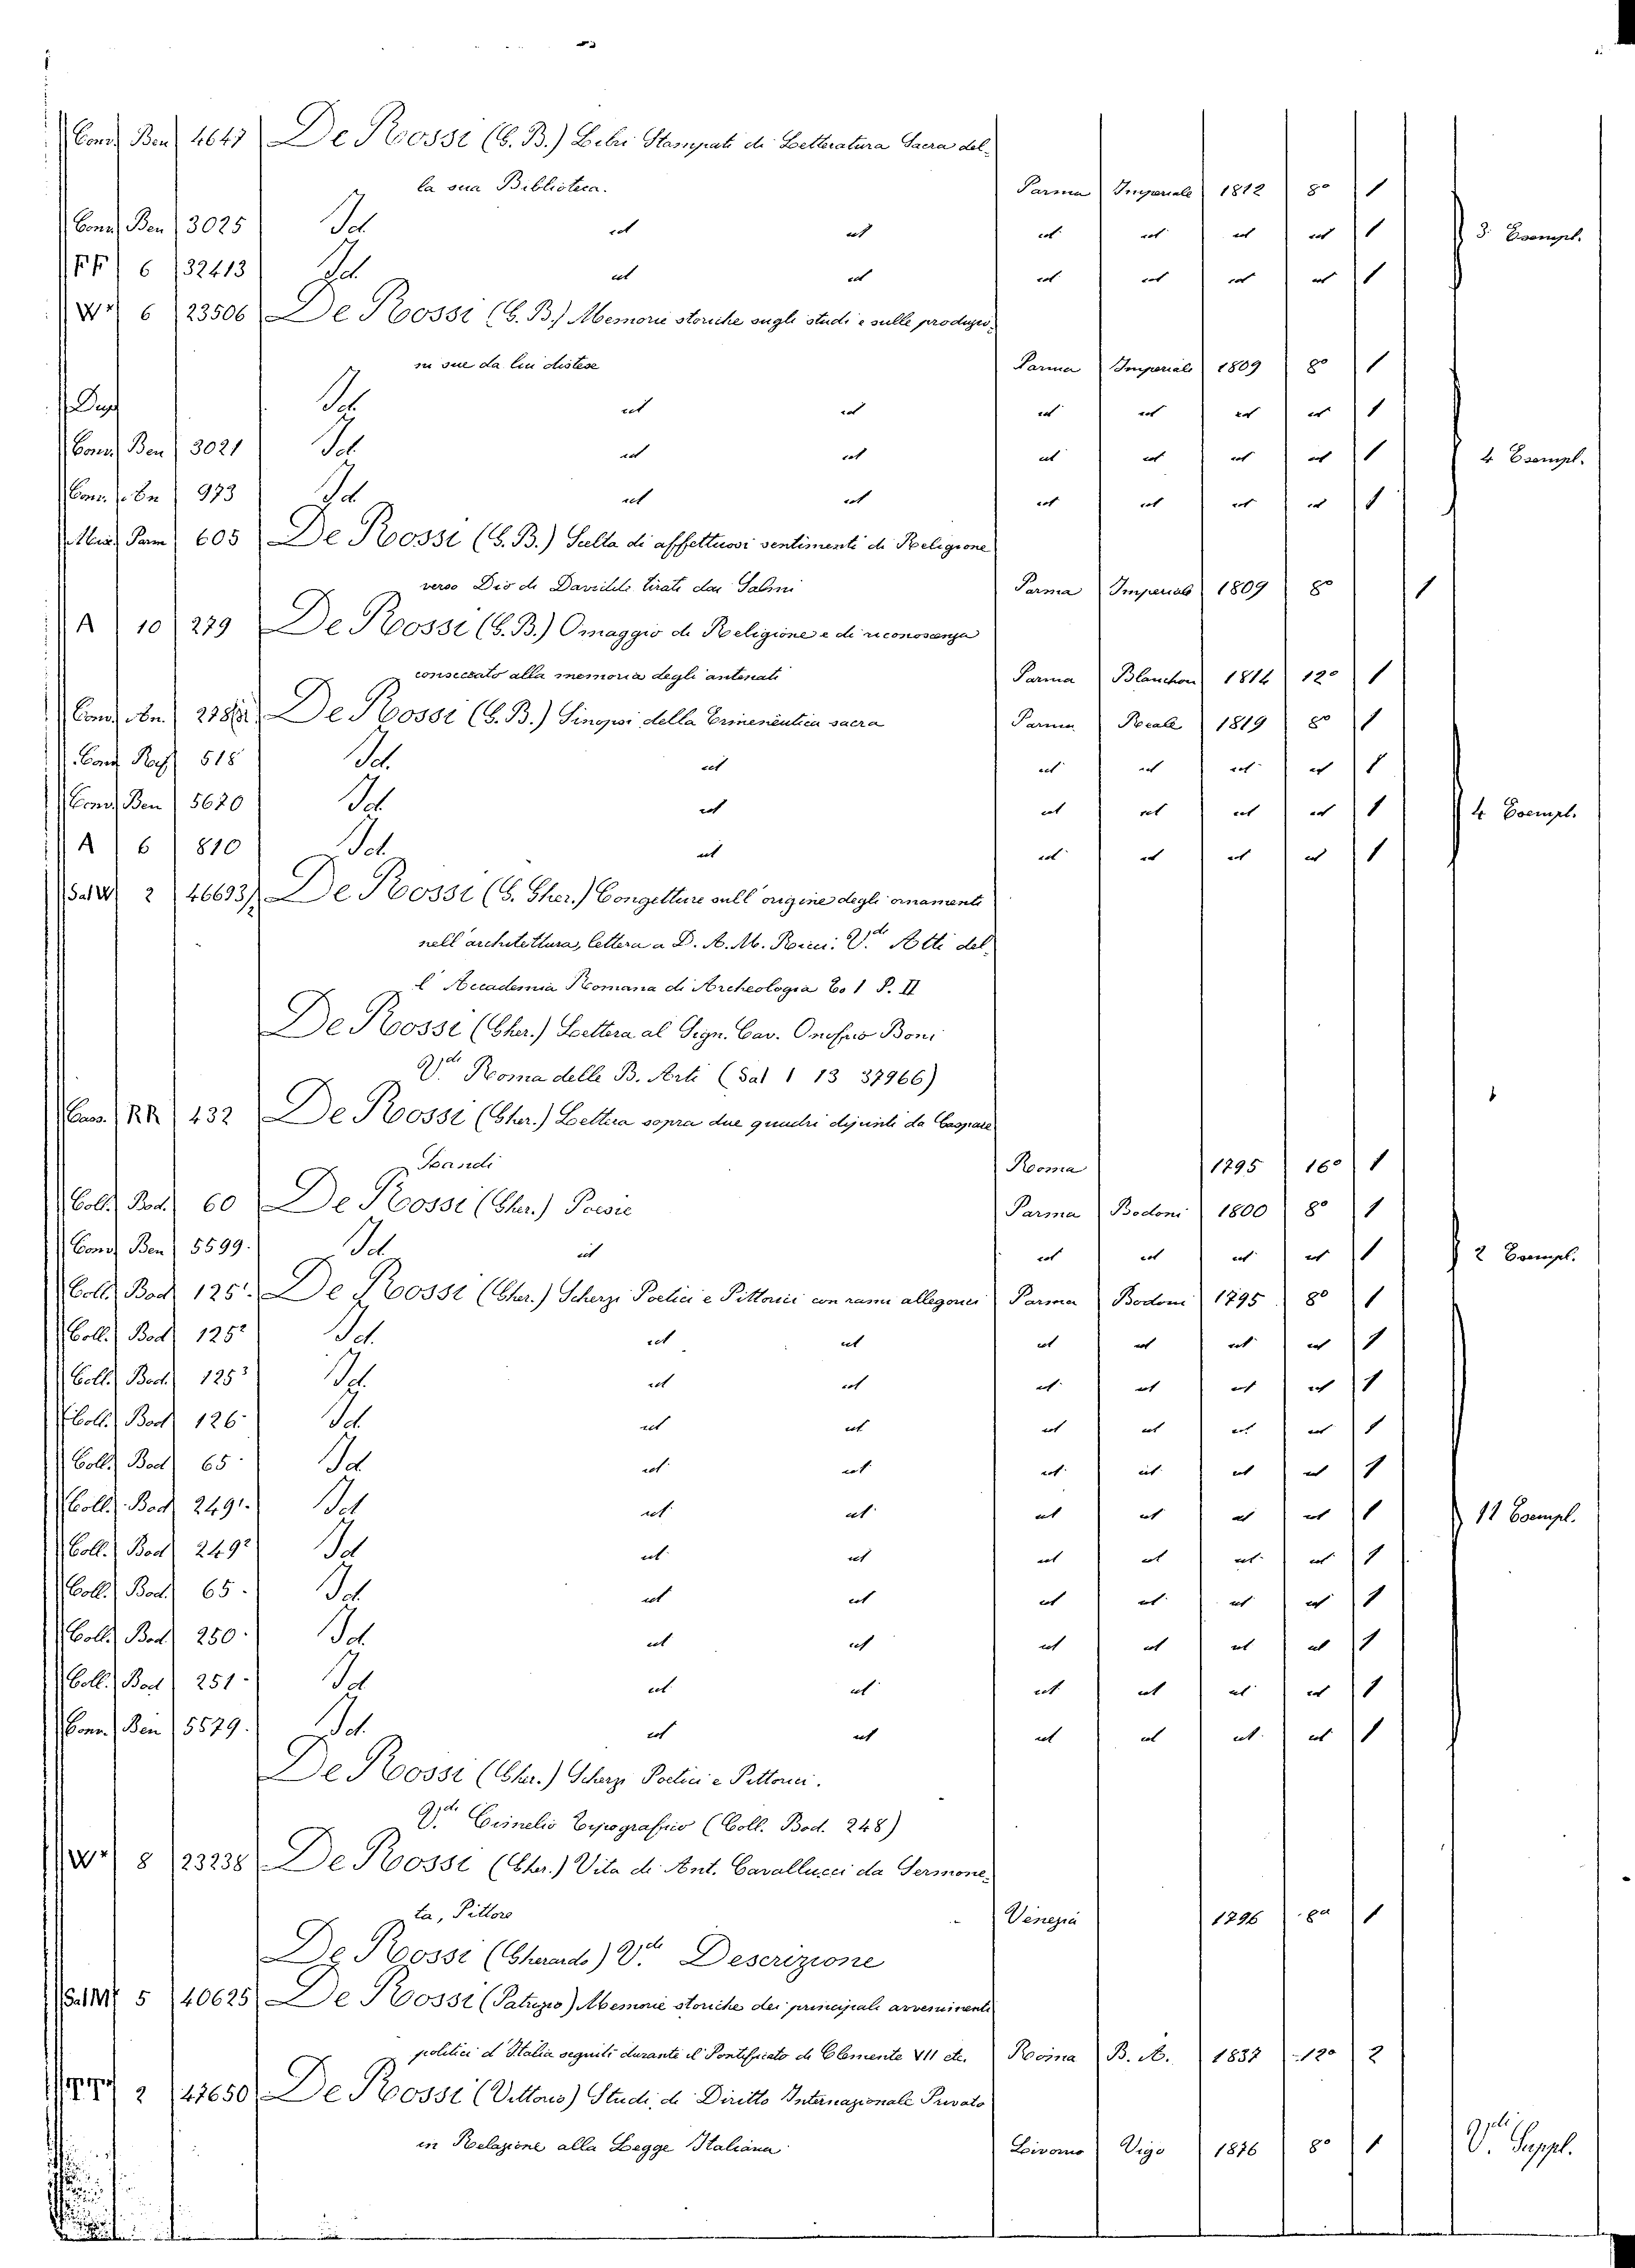 Cons. Ben 4647 De Rossi (G. B.) Libri Stampati di Letteratura Sacra del-
la sua Biblioteca. Parma Imperiale 1812 8º 1
Cons. Ben 3025 Id. id id id id id id 1 3 Esempl.
FF 6 32413 Id. id id id id id id 1
W* 6 23506 De Rossi (G. B.) Memorie storiche sugli studi e sulle produzio-
ni sue da lui distese Parma Imperiale 1809 8º 1
Dup Id. id id id id id id 1
Cons. Ben 3021 Id. id id id id id id 1 4 Esempl.
973 Id id id id id id id 1
Pam 605 De Rossi (G. B.) Scelta di affettuosi sentimenti di Religione
verso Dio di Davidde tirati dai Salmi Parma Imperiale 1809 8º 1
A 10 279 De Rossi (G. B.) Omaggio di Religione e di riconoscenza
consecrato alla memoria degli antenati Parma Blanchon 1814 12º 1
De Rossi (G. B.) Sinopsi della Ermeneutica sacra Parma Reale 1819 8º 1
518 Id. id id id id id 1
Cons. Ben 5620 Id. id id id id id 1 4 Esempl.
A 6 810 Id. id id id id id 1
Sal W 2 46693 De Rossi (G. Gher.) Congetture sull'origine degli ornamenti
nell'architettura, lettera a D. A. M. Ricci. V.di Atti del-
l'Accademia Romana di Archeologia To 1 P. II
De Rossi (Gher.) Lettera al Sign. Cav. Onofrio Boni
V.di Roma delle B. Arti (Sal 1 13 37966)
Cass. RR 432 De Rossi (Gher.) Lettera sopra due quadri dipinti da Gaspare
Landi Roma 1795 16º 1
Coll. Bod. 60 De Rossi (Gher.) Poesie Parma Bodoni 1800 8º 1
Cons. Ben 5599. Id id id id id id 1 2 Esempl.
Coll. Bod. 125¹ De Rossi (Gher.) Scherzi Poetici e Pittorici con rami allegorici Parma Bodoni 1795 8º 1
Coll. Bod. 125² Id. id id id id id id 1
Coll. Bod. 125³ Id. id id id id id id 1
Coll. Bod. 126 Id. id id id id id id 1
Coll. Bod 65 Id id id id id id id 1
Coll. Bod. 249¹ Id id id id id id id 1 11 Esempl.
Coll. Bod. 249² Id id id id id id id 1
Coll. Bod. 65 Id. id id id id id id 1
Coll. Bod. 250 Id. id id id id id id 1
Coll. Bod 251 Id id id id id id id 1
Cons. Ben 5579. Id. id id id id id id 1
De Rossi (Gher.) Scherzi Poetici e Pittorici.
V.di Cimelio Tipografico (Coll. Bod. 248)
W* 8 23238 De Rossi (Gher.) Vita di Ant. Cavallucci da Sermone-
ta, Pittore Venezia 1796 8º 1
De Rossi (Gherardo) V.di Descrizione
Sal M 5 40625 De Rossi (Patrizio) Memorie storiche dei principali avvenimenti
politici d'Italia seguiti durante il Pontificato di Clemente VII etc. Roma B. A. 1837 12º 2
2 47650 De Rossi (Vittorio) Studi di Diritto Internazionale Privato
in Relazione alla Legge Italiana Livorno Vigo 1876 8º 1 V.di Suppl.